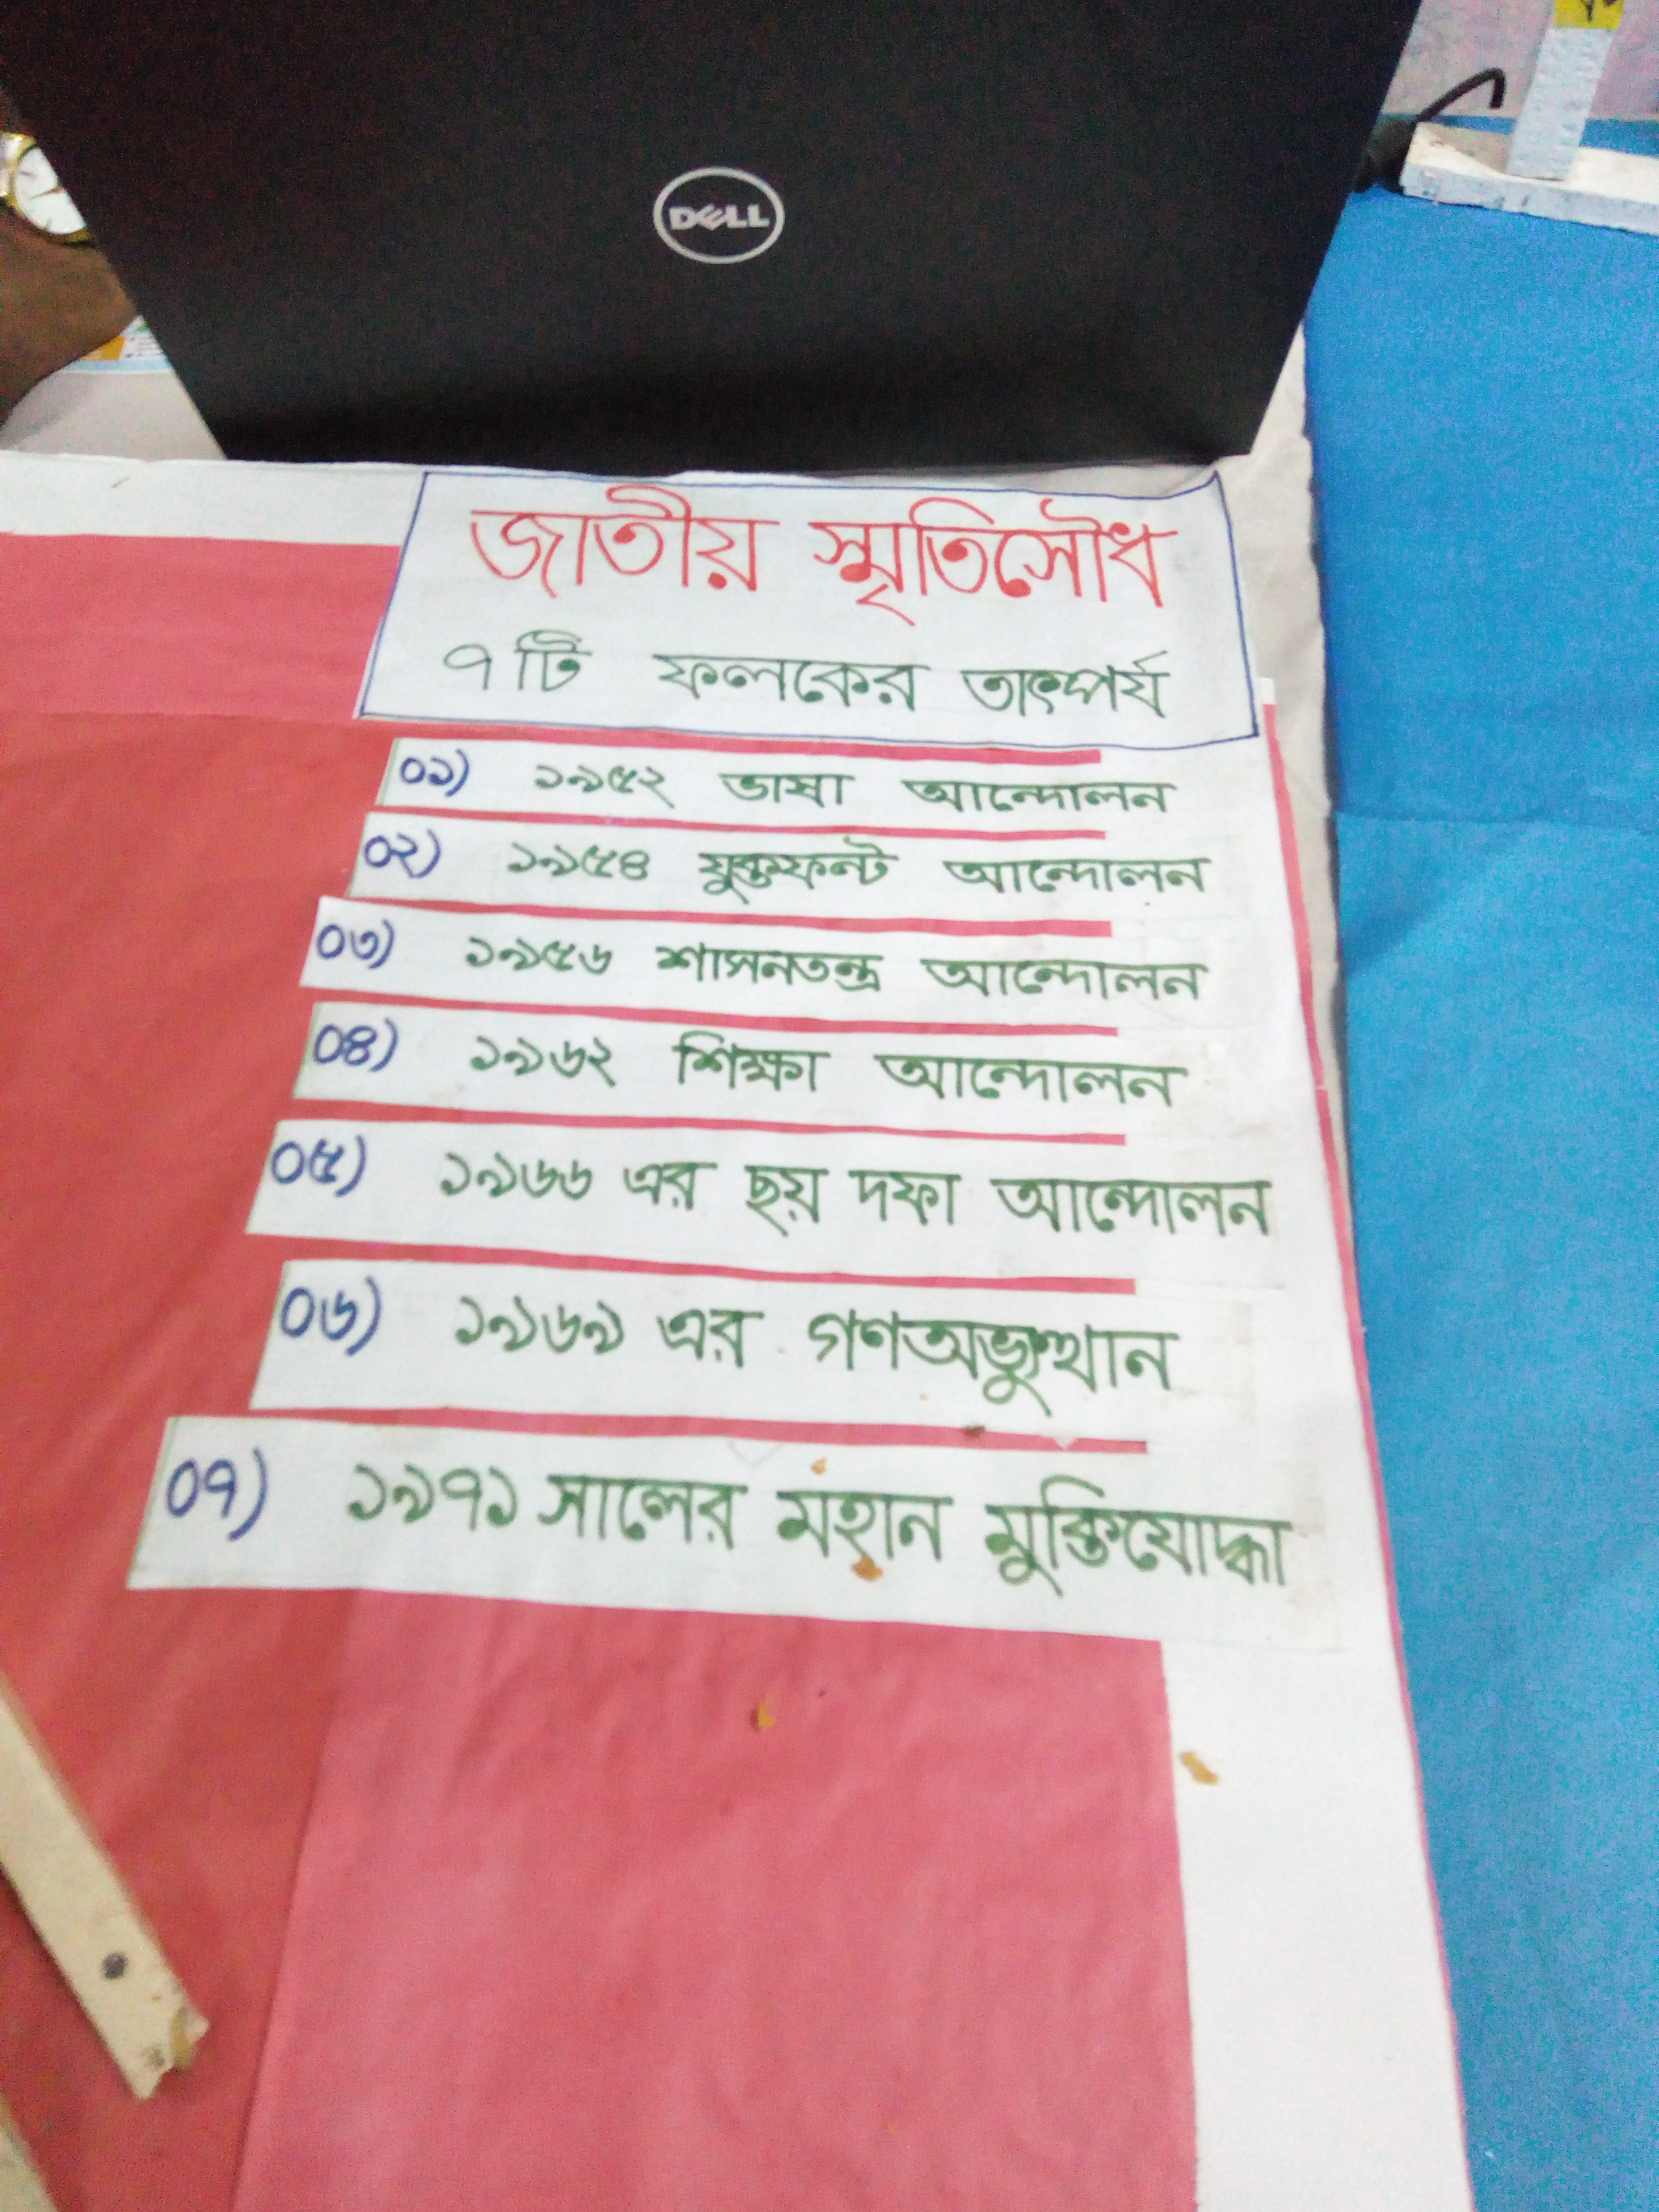 DELL
জাতীয় স্মৃতিসৌধ
৭টি ফলকের তাৎপর্য
০১) ১৯৫২ ভাষা আন্দোলন
০২) ১৯৫৪ যুক্তফন্ট আন্দোলন
০৩) ১৯৫৬ শাসনতন্ত্র আন্দোলন
০৪) ১৯৬২ শিক্ষা আন্দোলন
০৫) ১৯৬৬ এর ছয় দফা আন্দোলন
০৬) ১৯৬৯ এর গণঅভ্যুত্থান
০৭) ১৯৭১ সালের মহান মুক্তিযোদ্ধা